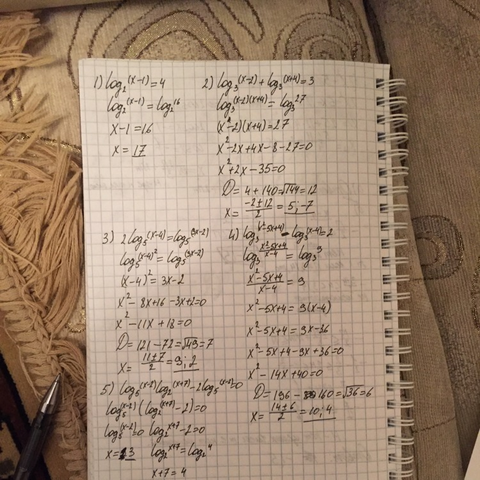 1) log₂(x-1)=4
log₂(x-1)=log₂16
x-1=16
x=17
2) log₃(x-2)+log₃(x+4)=3
log₃(x-2)(x+4)=log₃27
(x-2)(x+4)=27
x²-2x+4x-8-27=0
x²+2x-35=0
D=4+140=√144=12
x=(-2±12)/2=5;-7
3) 2log₅(x-4)=log₅(3x-2)
log₅(x-4)²=log₅(3x-2)
(x-4)²=3x-2
x²-8x+16-3x+2=0
x²-11x+18=0
D=121-72=√49=7
x=(11±7)/2=9;2
4) log₃(x²-5x+4)-log₃(x-4)=2
log₃(x²-5x+4)/(x-4)=log₃9
(x²-5x+4)/(x-4)=9
x²-5x+4=9(x-4)
x²-5x+4=9x-36
x²-5x+4-9x+36=0
x²-14x+40=0
D=196-160=√36=6
x=(14±6)/2=10;4
5) log₅(x-2)log₂(x+7)-2log₅(x-2)=0
log₅(x-2)(log₂(x+7)-2)=0
log₅(x-2)=0 log₂x+7-2=0
x=3 log₂x+7=log₂4
x+7=4